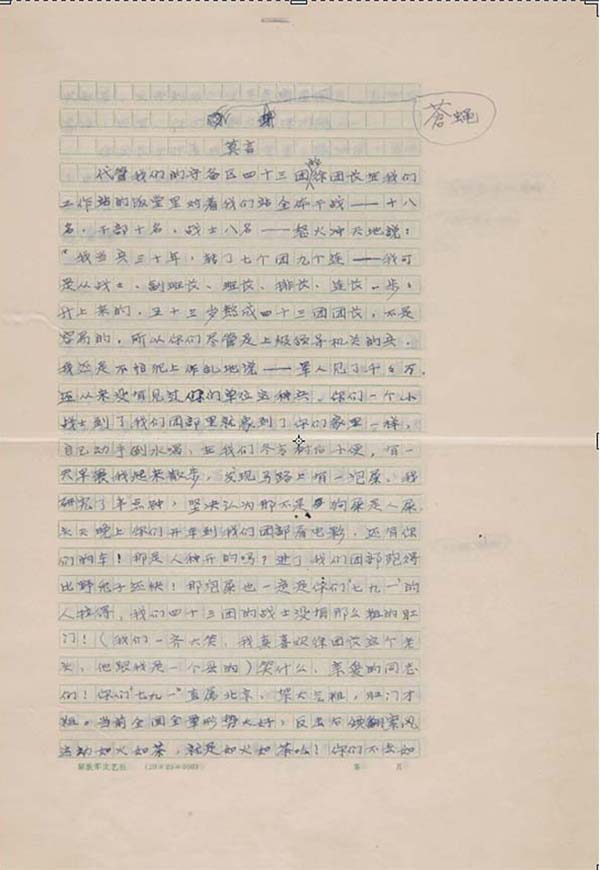 苍蝇
莫言
代管我们的守备区四十三团的徐团长在我们
工作站的饭堂里对着我们站全体干战——十八
名,干部十名,战士八名——怒火冲天地说:
“我当兵三十年,转了七个团九个连——我可
是从战士、副班长、班长、排长、连长一步步
升上来的,三十三岁熬成四十三团团长,不是
容易的,所以你们尽管是上级领导机关的兵,
我还是不怕犯上作乱地说——军人见了千千万,
还从来没有见过你们单位这种兵。你们一个小
战士到了我们团部里就象到了你们家里一样,
自己动手倒水喝,在我们冬青树后小便,有一
天早晨我起来散步,发现马路上有一泡屎,我
研究了半点钟,坚决认为那不是狗屎是人屎。
头天晚上你们开车到我们团部看电影,还有你
们的车!那是人种开的吗?进了我们团部跑得
比野兔子还快!那泡屎也一定是你们“七九一”的
人拉得,我们四十三团的战士没有那么粗的肛
门!(我们一齐大笑,我真喜欢徐团长这个老
头,他跟我是一个县的)笑什么,亲爱的同志
们!你们“七九一”直属北京,架大气粗,肛门才
粗。当前全国全军形势大好,反击右倾翻案风
运动如火如荼,就是如火如荼哈!你们不去如
解放军文艺社 (20×25=500) 第 页